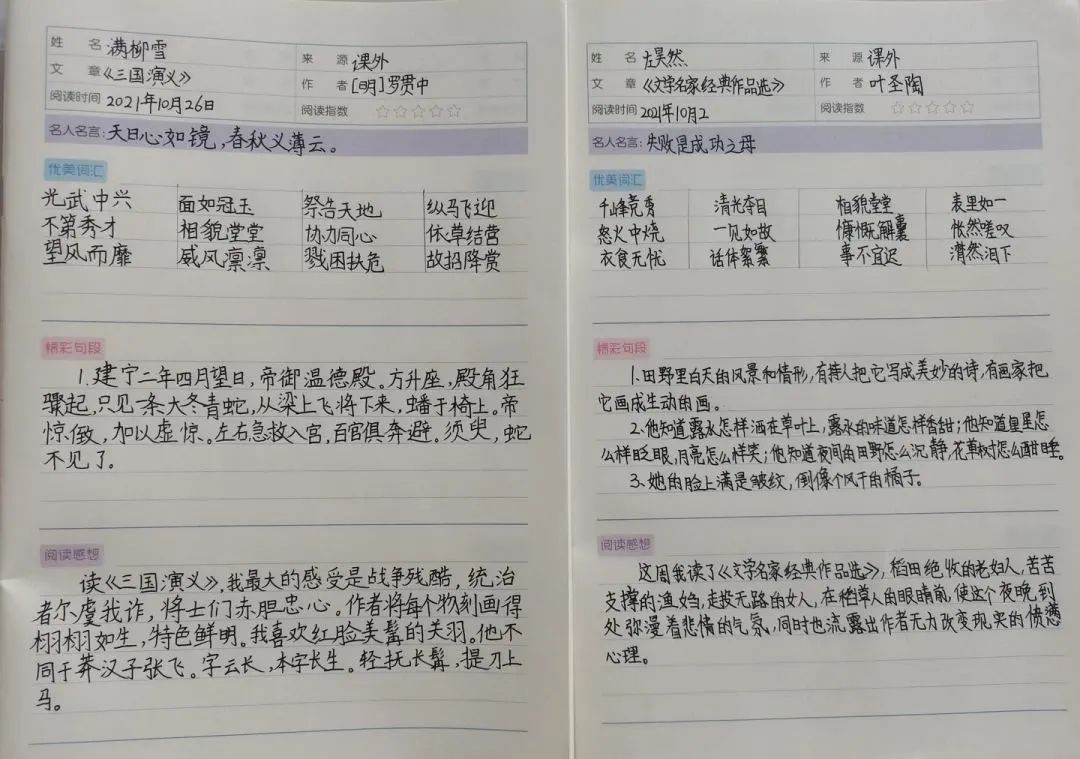 姓 名 满柳雪 来 源 课外
文 章 《三国演义》 作 者 [明]罗贯中
阅读时间 2021年10月26日 阅读指数 ☆☆☆☆☆
名人名言:天日心如镜,春秋义薄云。
优美词汇
光武中兴 面如冠玉 祭告天地 纵马飞迎
不第秀才 相貌堂堂 协力同心 休草结营
望风而靡 威风凛凛 戮困扶危 故招降赏
精彩句段
1.建宁二年四月望日,帝御温德殿。方升座,殿角狂
骤起,只见一条大冬青蛇,从梁上飞将下来,蟠于椅上。帝
惊倒,加以虚惊。左右急救入宫,百官俱奔避。须臾,蛇
不见了。
阅读感想
读《三国演义》,我最大的感受是战争残酷,统治
者尔虞我诈,将士们赤胆忠心。作者将每个物刻画得
栩栩如生,特色鲜明。我喜欢红脸美髯的关羽。他不
同于莽汉子张飞。字云长,本字长生。轻抚长髯,提刀上
马。
姓 名 左昊然 来 源 课外
文 章 《文学名家经典作品选》 作 者 叶圣陶
阅读时间 2021年10月2 阅读指数 ☆☆☆☆☆
名人名言:失败是成功之母
优美词汇
千峰竞秀 清光夺目 相貌堂堂 表里如一
怒火中烧 一见如故 慷慨解囊 怅然嗟叹
衣食无忧 话体絮繁 事不宜迟 潸然泪下
精彩句段
1.田野里白天的风景和情形,有诗人把它写成美妙的诗,有画家把
它画成生动的画。
2.他知道露水怎样洒在草叶上,露水的味道怎样香甜;他知道星星怎
么样眨眼,月亮怎么样笑;他知道夜间的田野怎么沉静,花草树怎么酣睡。
3.她的脸上满是皱纹,倒像个风干的橘子。
阅读感想
这周我读了《文学名家经典作品选》,稻田绝收的老妇人,苦苦
支撑的渔妇,走投无路的女人,在稻草人的眼睛前,使这个夜晚,到
处弥漫着悲情的气氛,同时也流露出作者无力改变现实的愤懑
心理。